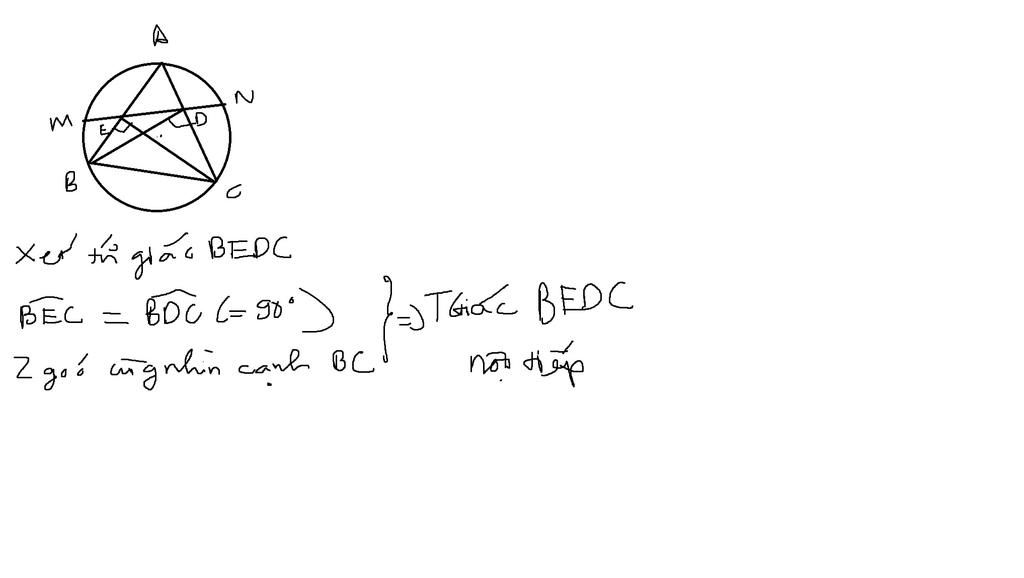 A
M
N
E
D
B
C
Xét tứ giác BEDC
BEC = BDC (= 90°)
2 góc cùng nhìn cạnh BC
} => TGiác BEDC
nội tiếp